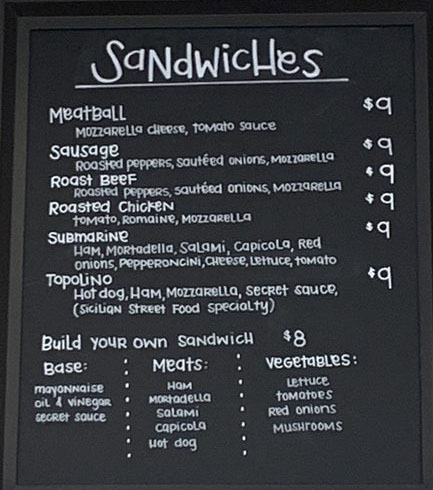 SaNdwicHes
Meatball $9
Mozzarella cheese, tomato sauce
Sausage $9
Roasted peppers, sautéed onions, Mozzarella
Roast Beef $9
Roasted peppers, sautéed onions, Mozzarella
Roasted Chicken $9
tomato, Romaine, Mozzarella
Submarine $9
Ham, Mortadella, Salami, Capicola, Red
onions, Pepperoncini, Cheese, Lettuce, tomato
Topolino $9
Hot dog, Ham, Mozzarella, Secret sauce,
(Sicilian Street Food Specialty)
Build your own sandwich $8
Base: Meats: Vegetables:
mayonnaise Ham Lettuce
oil & vinegar Mortadella tomatoes
secret sauce Salami Red onions
Capicola Mushrooms
Hot dog